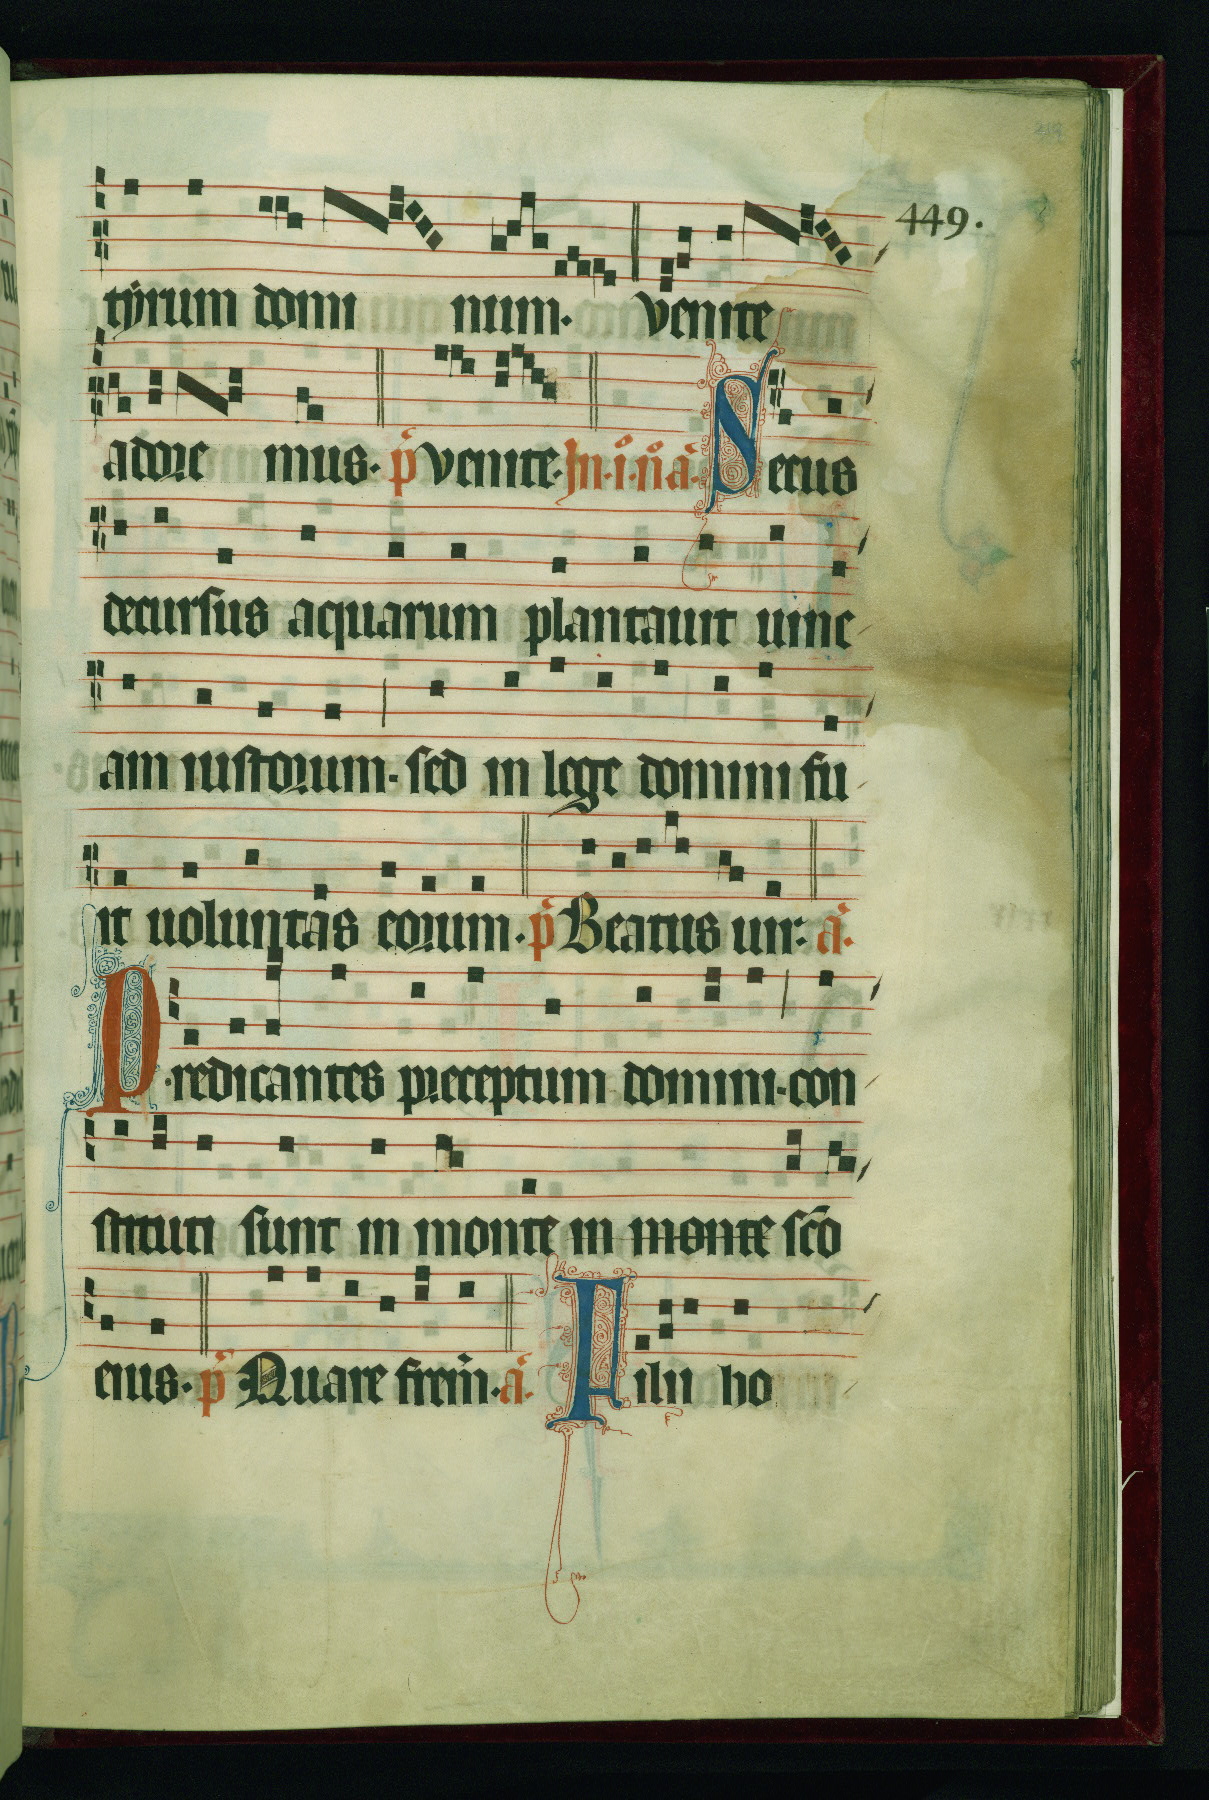 449.
tyrum domi num. Venite
adore mus. p̄ Venite. In .i. nō. a. Secus
decursus aquarum plantauit uine
am iustorum. sed in lege domini fu
it uoluntas eorum. p̄ Beatus uir: ā.
Predicantes preceptum domini. con
stituti sunt in monte in monte sc̄o
eius. p̄ Quare frem̄. ā. Filii ho